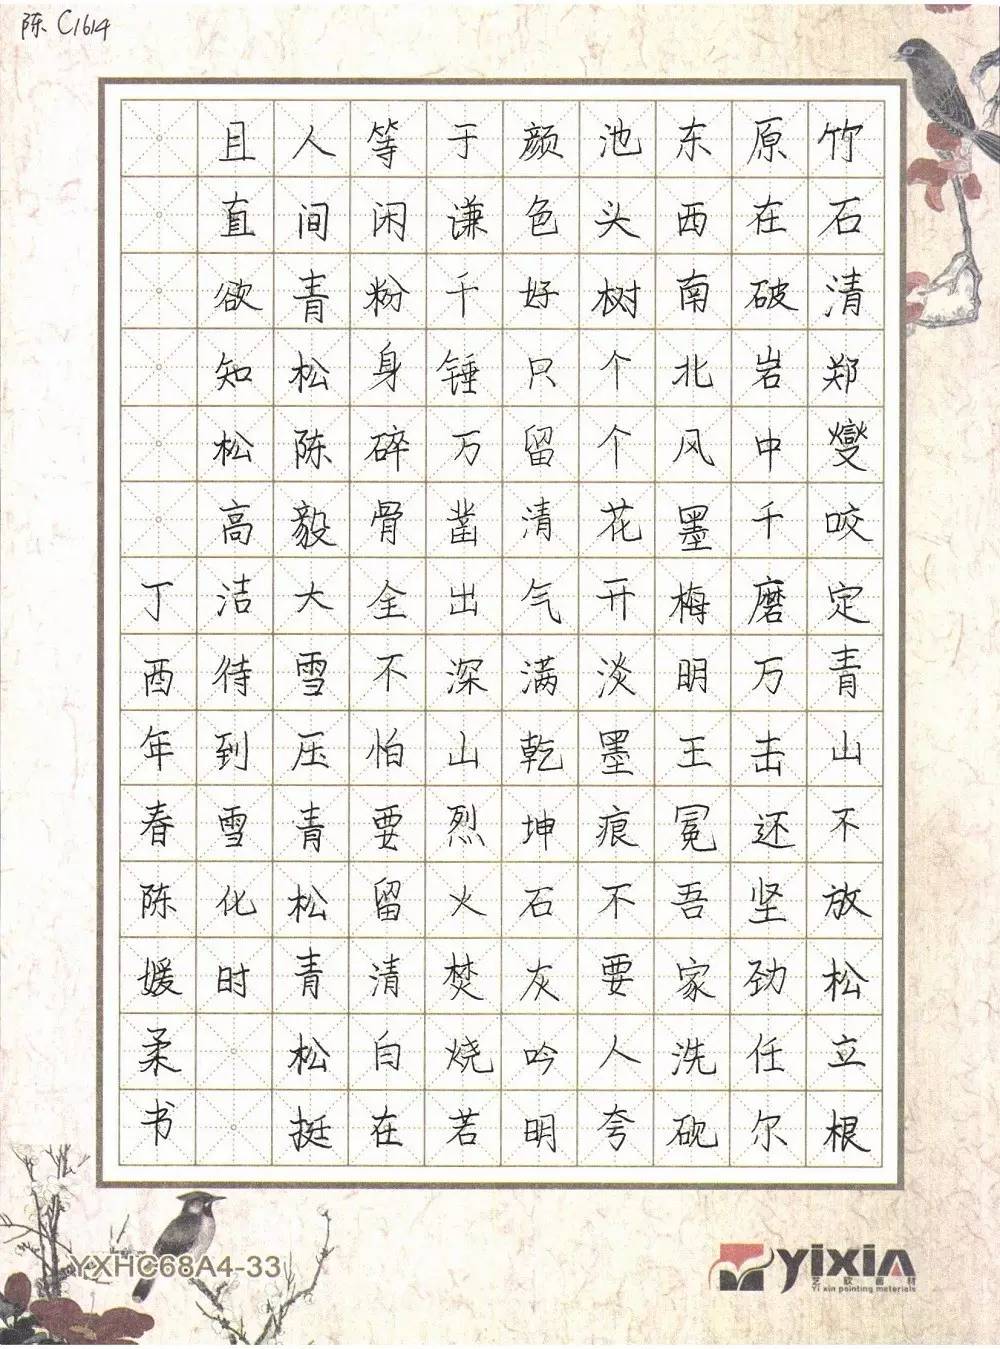 陈 C1614
竹石清郑燮咬定青山不放松立根
原在破岩中千磨万击还坚劲任尔
东西南北风墨梅明王冕吾家洗砚
池头树个个花开淡墨痕不要人夸
颜色好只留清气满乾坤石灰吟明
于谦千锤万凿出深山烈火焚烧若
等闲粉身碎骨全不怕要留清白在
人间青松陈毅大雪压青松青松挺
且直欲知松高洁待到雪化时
丁酉年春陈媛柔书
YXHC68A4-33
yixin
艺欣画材
Yi xin painting materials